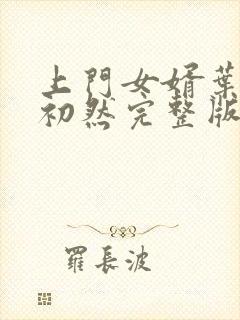 上門女婿葉
初然完整版
羅長波